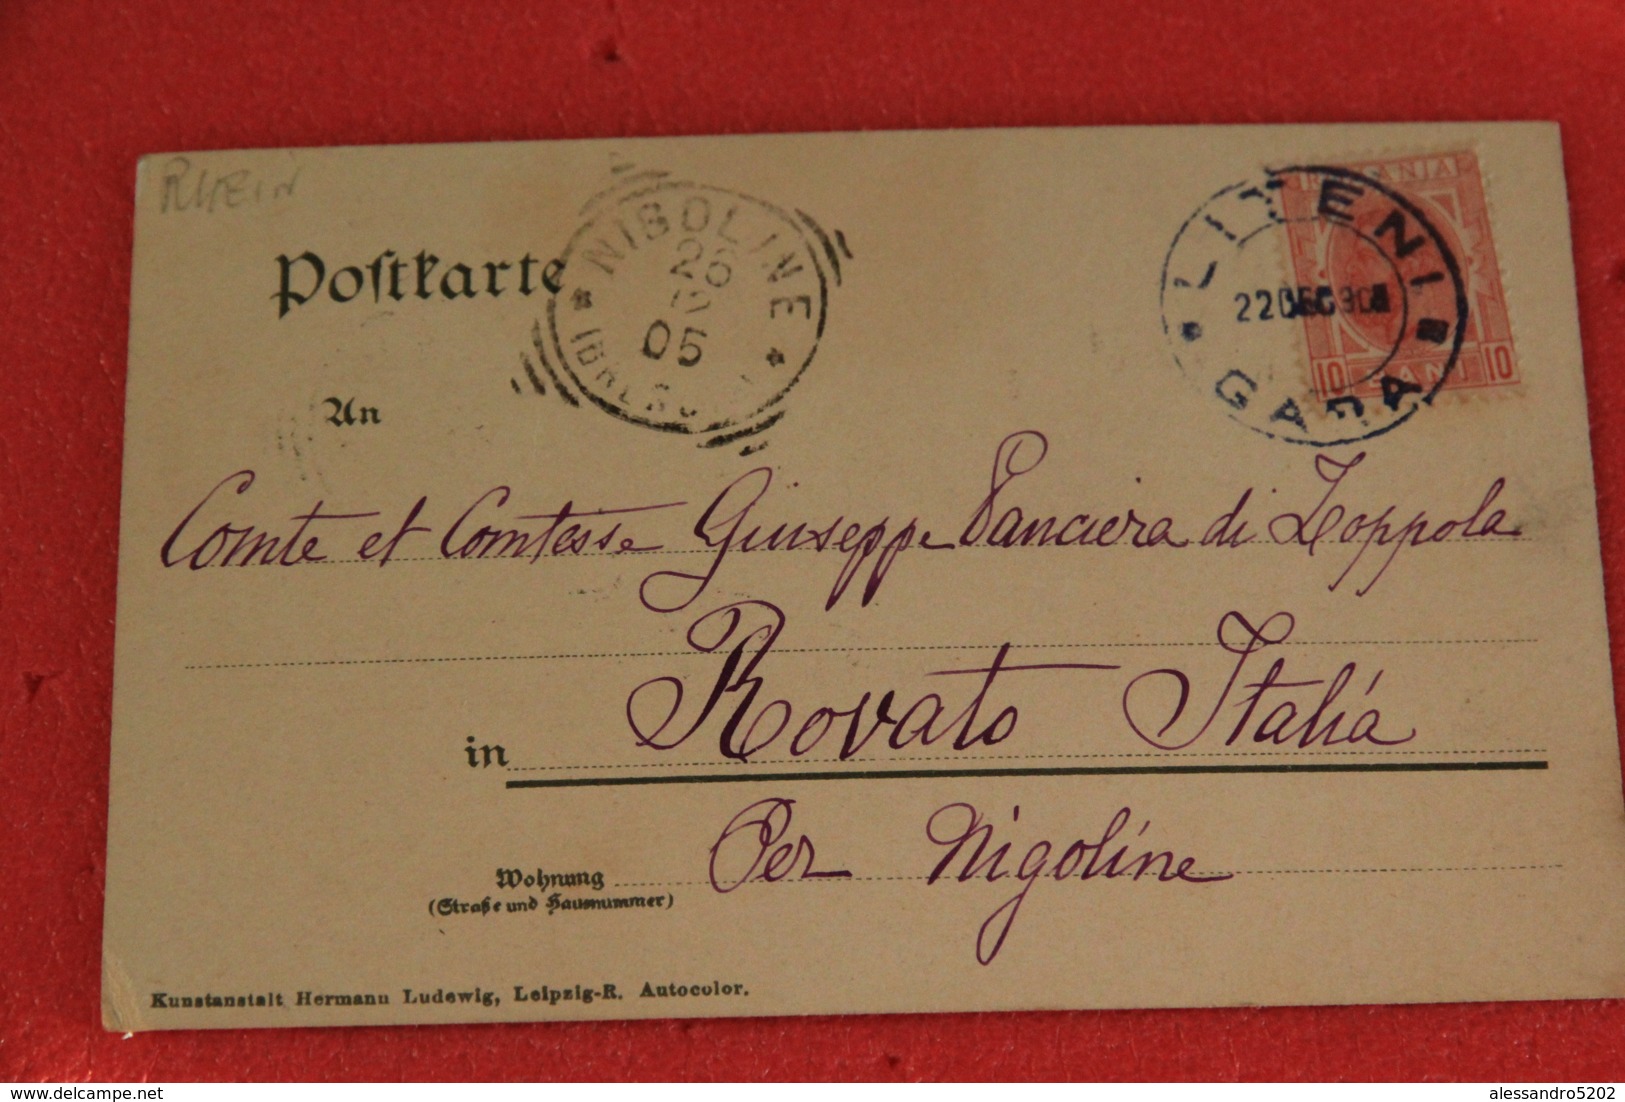 RHEIN
Postkarte
NIGOLINE
26
05
ROMANIA
LITENI
22 DEC 90
GARA
10 BANI 10
An
Comte et Comtesse Giuseppe Panciera di Zoppola
in Rovato Italia
Per Nigoline
Wohnung
(Straße und Hausnummer)
Kunstanstalt Hermann Ludewig, Leipzig-R. Autocolor.
delcampe.net
alessandro5202